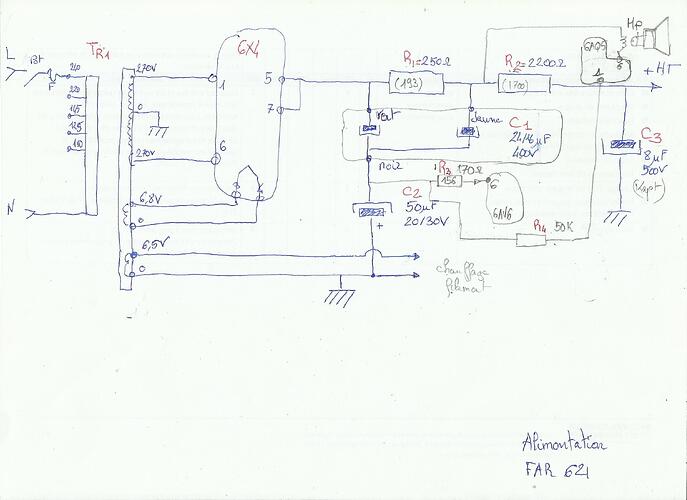 L
Bt
F
210
220
145
125
110
N
TR1
270V
0
270V
6,8V
0
6,5V
0
6X4
1
6
5
7
3
4
R1=250Ω
(193)
R2=2200Ω
(1700)
6AQ5
HP
+HT
Vert
Jaune
C1
24/16µF
400V
Noir
C2
50µF
20/30V
+
R3 170Ω
156
6
6AV6
R4 50K
C3
8µF
500V
chauffage
filament
Alimentation
FAR 621